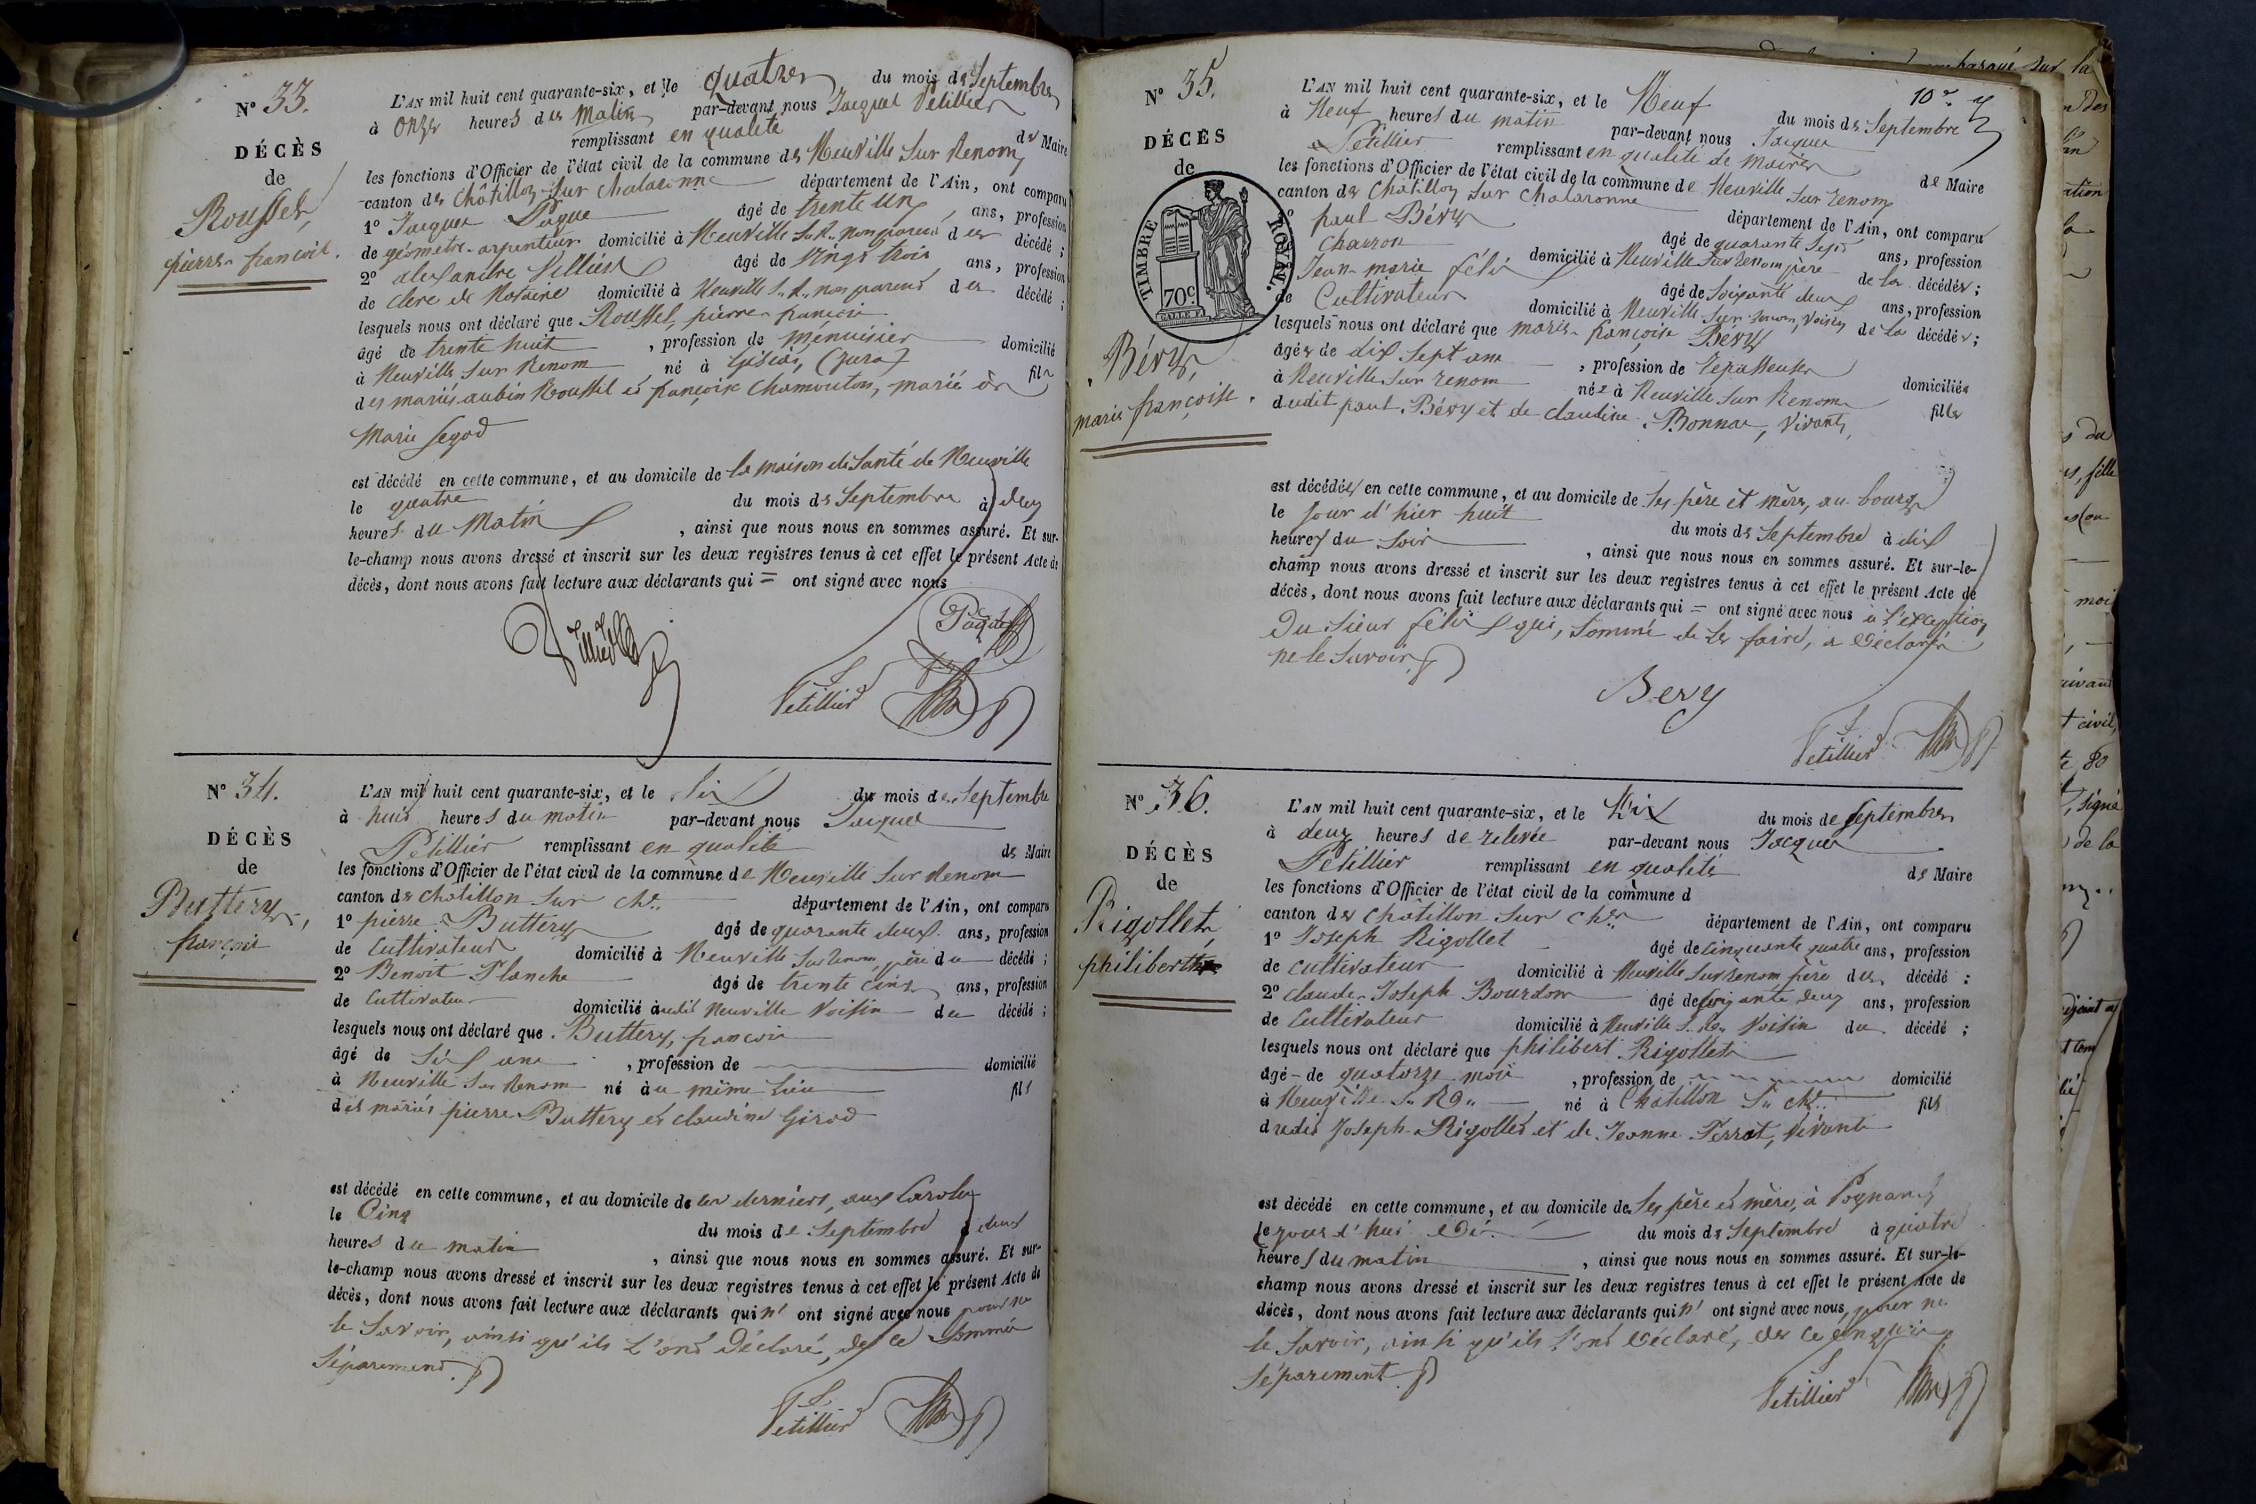 N° 33.
DÉCÈS
de
Roussel,
pierre françois.
L'AN mil huit cent quarante-six, et le quatre du mois de Septembre
à onze heures du Matin par-devant nous Jacques Petillier
remplissant en qualité de Maire
les fonctions d'Officier de l'état civil de la commune de Neuville Sur Renom
canton de Châtillon-Sur Chalaronne département de l'Ain, ont comparu
1° Jacques âgé de trente un ans, profession
de géomètre-arpenteur domicilié à Neuville S. R. non parent du décédé ;
2° alexandre âgé de vingt trois ans, profession
de clerc de Notaire domicilié à Neuville S. R. non parent du décédé ;
lesquels nous ont déclaré que Roussel, pierre-françois
âgé de trente huit , profession de Ménuisier domicilié
à Neuville Sur Renom né à (Jura) fils
des mariés aubin Roussel et françoise Chamouton, marié à
Marie
est décédé en cette commune, et au domicile de la maison de Santé de Neuville
le quatre du mois de Septembre à deux
heures du Matin , ainsi que nous nous en sommes assuré. Et sur-
le-champ nous avons dressé et inscrit sur les deux registres tenus à cet effet le présent Acte de
décès, dont nous avons fait lecture aux déclarants qui = ont signé avec nous
Petillier
N° 34.
DÉCÈS
de
Buttery,
françois
L'AN mil huit cent quarante-six, et le Six du mois de Septembre
à huit heures du matin par-devant nous Jacques
Petillier remplissant en qualité de Maire
les fonctions d'Officier de l'état civil de la commune de Neuville Sur Renom
canton de Chatillon Sur Ch. département de l'Ain, ont comparu
1° pierre Buttery âgé de quarante deux ans, profession
de Cultivateur domicilié à Neuville Sur Renom, père du décédé ;
2° Benoit Planche âgé de trente cinq ans, profession
de Cultivateur domicilié audit Neuville Voisin du décédé ;
lesquels nous ont déclaré que Buttery, françois
âgé de Six ans , profession de domicilié
à Neuville Sur Renom né au même lieu fils
des mariés pierre Buttery et claudine Girod
est décédé en cette commune, et au domicile de ces derniers, aux
le Cinq du mois de Septembre à deux
heures du matin , ainsi que nous nous en sommes assuré. Et sur-
le-champ nous avons dressé et inscrit sur les deux registres tenus à cet effet le présent Acte de
décès, dont nous avons fait lecture aux déclarants qui n' ont signé avec nous pour ne
le Savoir, ainsi qu'ils l'ont déclaré, de ce Sommé
Séparément.
Petillier
10e.
N° 35.
DÉCÈS
de
TIMBRE ROYAL.
70c.
Béry,
marie françoise.
L'AN mil huit cent quarante-six, et le Neuf du mois de Septembre
à Neuf heures du matin par-devant nous Jacques
Petillier remplissant en qualité de maire de Maire
les fonctions d'Officier de l'état civil de la commune de Neuville Sur renom
canton de Châtillon Sur Chalaronne département de l'Ain, ont comparu
1° paul Béry âgé de quarante Sept ans, profession
charron domicilié à Neuville Sur Renom père de la décédée ;
Jean-marie félix âgé de Soixante deux ans, profession
de Cultivateur domicilié à Neuville Sur renom, Voisin de la décédée ;
lesquels nous ont déclaré que marie françoise Béry
âgée de dix Sept ans , profession de repasseuse domiciliée
à Neuville Sur renom née à Neuville Sur Renom fille
dudit paul Béry et de claudine Bonnar, vivants,
est décédée en cette commune, et au domicile de Ses père et mère, au bourg
le Jour d'hier huit du mois de Septembre à dix
heures du Soir , ainsi que nous nous en sommes assuré. Et sur-le-
champ nous avons dressé et inscrit sur les deux registres tenus à cet effet le présent Acte de
décès, dont nous avons fait lecture aux déclarants qui = ont signé avec nous à l'exception
du Sieur félix qui, Sommé de le faire, a déclaré
ne le Savoir
Bery
Petillier
N° 36.
DÉCÈS
de
Rigollet,
philibert
L'AN mil huit cent quarante-six, et le Dix du mois de Septembre
à deux heures de relevée par-devant nous Jacques
Petillier remplissant en qualité de Maire
les fonctions d'Officier de l'état civil de la commune d
canton de Châtillon Sur Ch. département de l'Ain, ont comparu
1° Joseph Rigollet âgé de cinquante quatre ans, profession
de cultivateur domicilié à Neuville Sur renom père du décédé :
2° claude-Joseph Bourdon âgé de Soixante deux ans, profession
de Cultivateur domicilié à Neuville S. R. Voisin du décédé ;
lesquels nous ont déclaré que philibert Rigollet
âgé de quatorze mois , profession de domicilié
à Neuville S. R. né à Chatillon S. Ch. fils
dudit Joseph Rigollet et de Jeanne Ferrat, vivants
est décédé en cette commune, et au domicile de Ses père et mère, à
le jour d'hui dix du mois de Septembre à quatre
heures du matin , ainsi que nous nous en sommes assuré. Et sur-le-
champ nous avons dressé et inscrit sur les deux registres tenus à cet effet le présent Acte de
décès, dont nous avons fait lecture aux déclarants qui n' ont signé avec nous, pour ne
le Savoir, ainsi qu'ils l'ont déclaré, de ce enquis
Séparément
Petillier